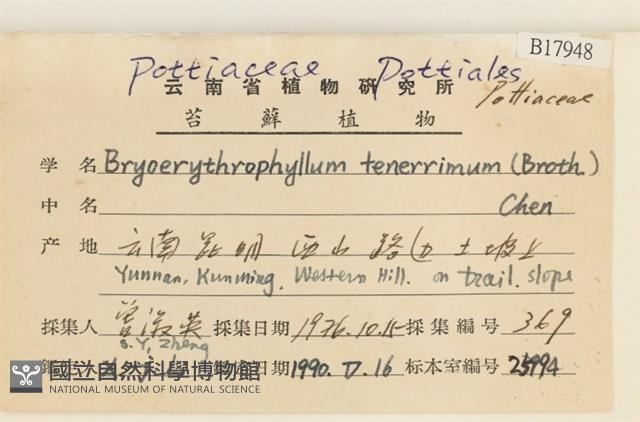 B17948
Pottiaceae Pottiales
云南省植物研究所 Pottiaceae
苔蘚植物
学名 Bryoerythrophyllum tenerrimum (Broth.)
中名 Chen
产地 云南昆明西山路边土坡上
Yunnan, Kunming, Western Hill. on trail. slope
採集人 採集日期 1976.10.15 採集編号 369
S.Y. Zheng
1990. 16 标本室編号
國立自然科學博物館
NATIONAL MUSEUM OF NATURAL SCIENCE